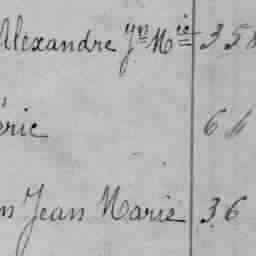 Alexandre Jn Mie 358
éric 66
n Jean Marie 36